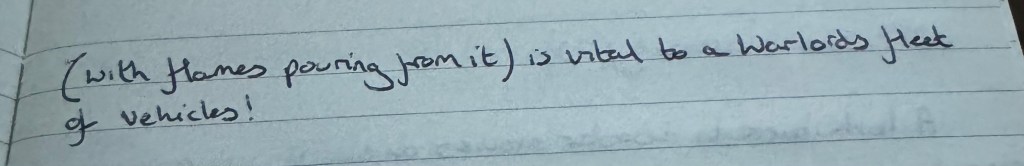 (with flames pouring from it) is vital to a Warlords fleet
of vehicles!